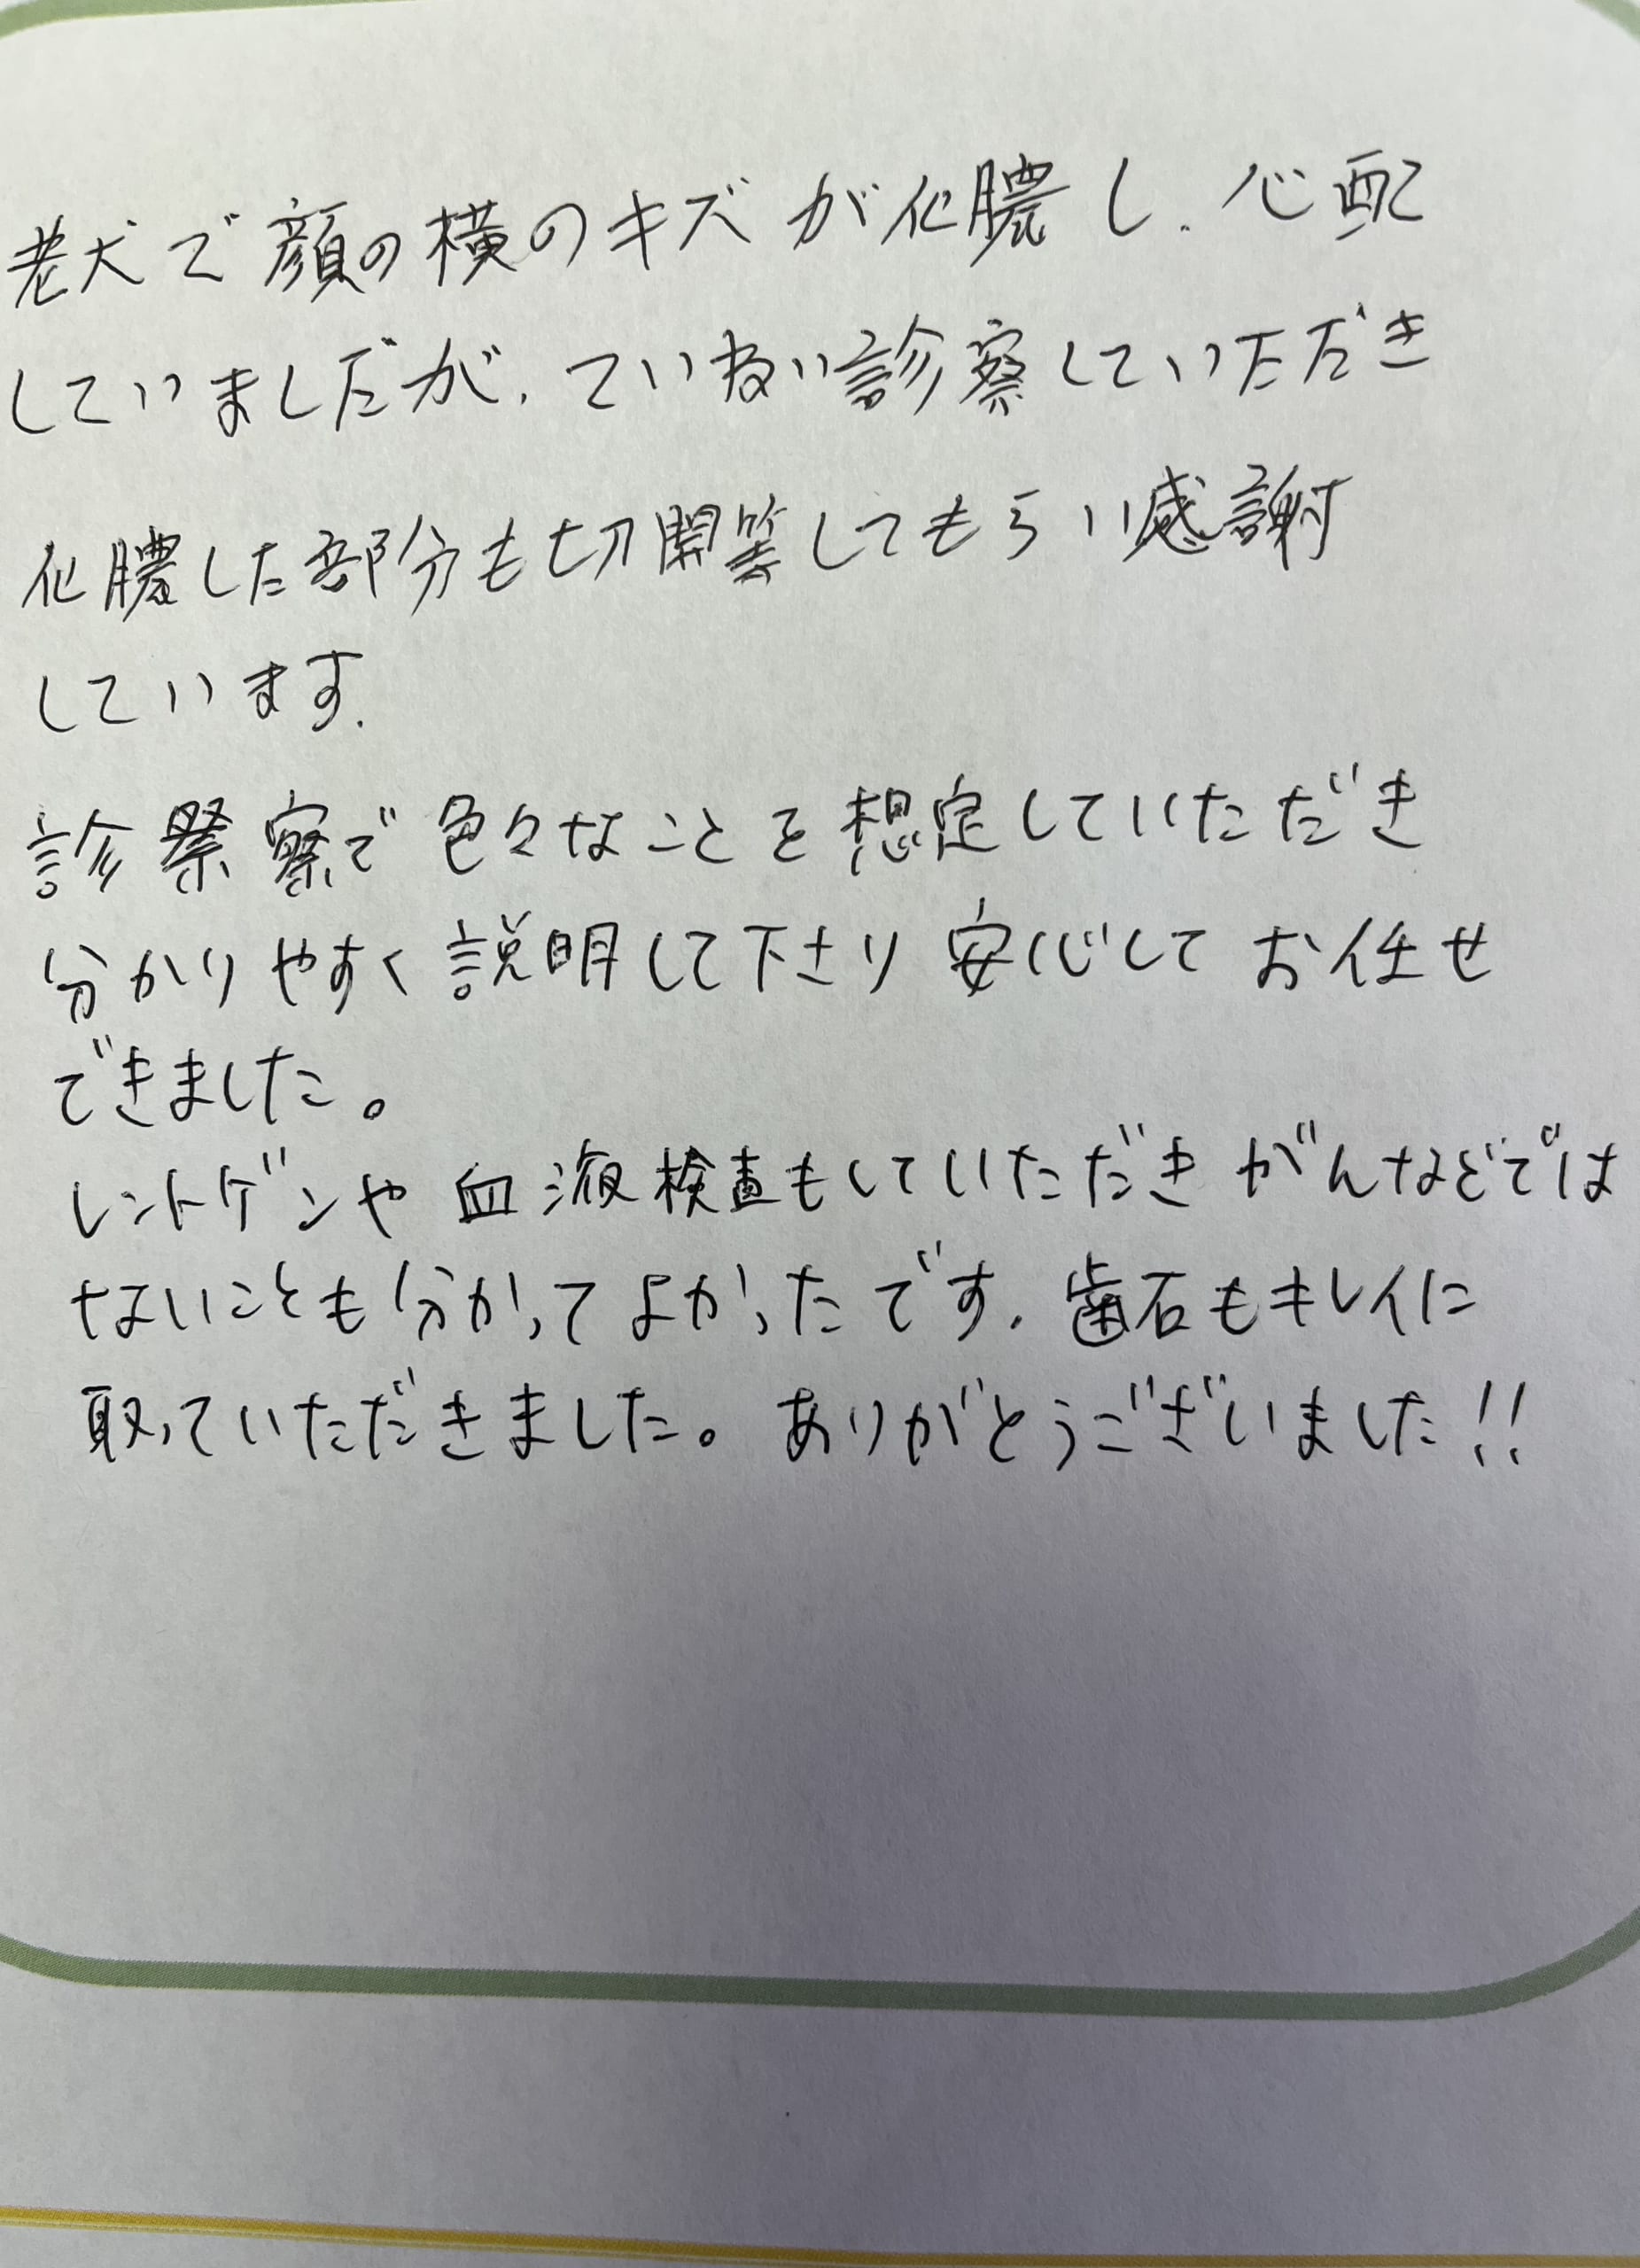 老犬で顔の横のキズが化膿し、心配
していましだが、ていねい診察していただき
化膿した部分も切開等してもらい感謝
しています.
診察で色々なことを想定していただき
分かりやすく説明して下さり安心してお任せ
できました。
レントゲンや血液検査もしていただきがんなどでは
ないことも分かってよかったです。歯石もキレイに
取っていただきました。ありがとうございました!!